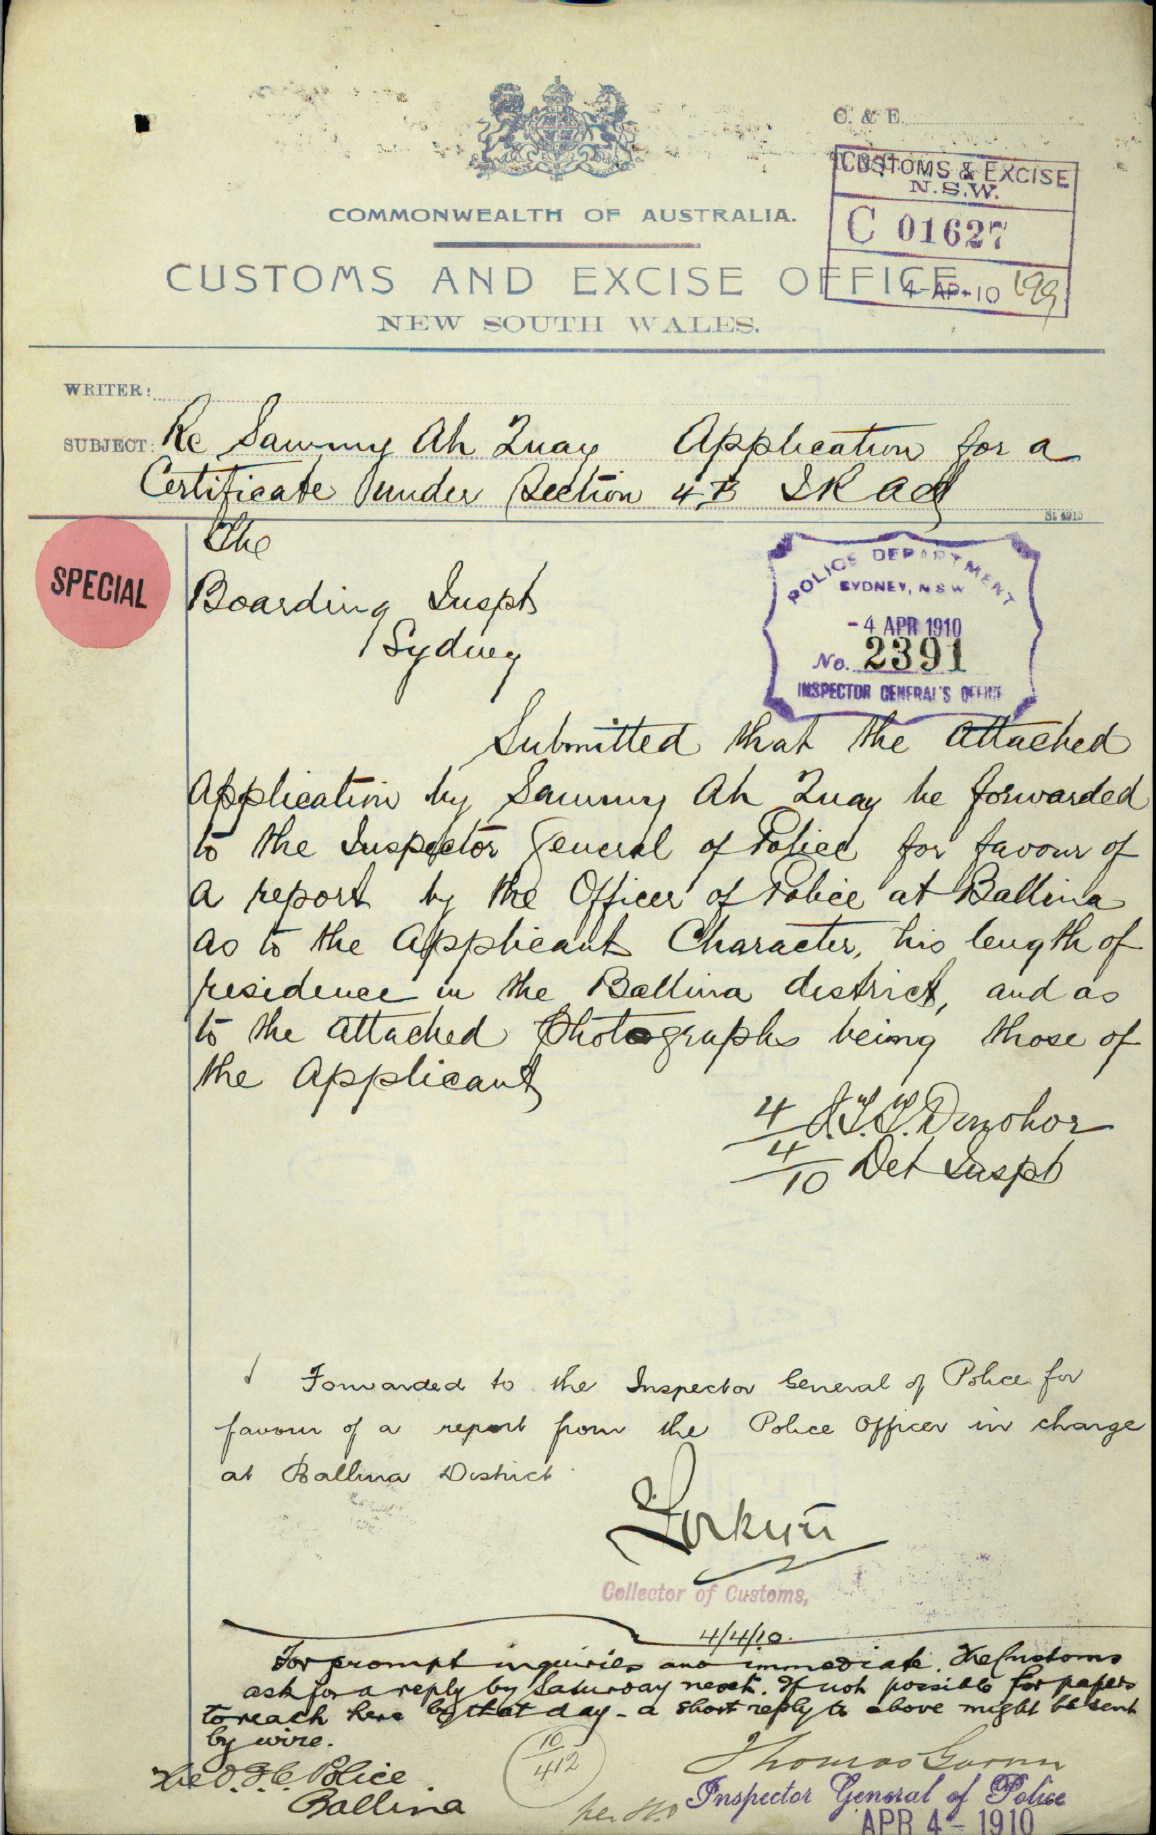 C. & E.
CUSTOMS & EXCISE
N.S.W.
C 01627
4-AP-10 199
COMMONWEALTH OF AUSTRALIA.
CUSTOMS AND EXCISE OFFICE
NEW SOUTH WALES.
WRITER:
SUBJECT: Re Sammy Ah Quay Application for a
Certificate under Section 4B IR Act
SPECIAL
The
Boarding Inspt
Sydney
POLICE DEPARTMENT
SYDNEY, N.S.W
- 4 APR 1910
No. 2391
INSPECTOR GENERAL'S OFFICE
Submitted that the attached
Application by Sammy Ah Quay be forwarded
to the Inspector General of Police for favour of
a report by the Officer of Police at Ballina
as to the Applicant Character, his length of
residence in the Ballina district, and as
to the attached Photographs being those of
the Applicant
4/4/10 Donohoe
Det Inspt
Forwarded to the Inspector General of Police for
favour of a report from the Police Officer in charge
at Ballina District
Collector of Customs,
4/4/10.
For prompt inquiries and immediate. The Customs
ask for a reply by Saturday next. If not possible for papers
to reach here by that day - a short reply to above might be sent
by wire.
The O. I/C. Police
Ballina
10
412
Thomas Garvin
Inspector General of Police
APR 4 - 1910